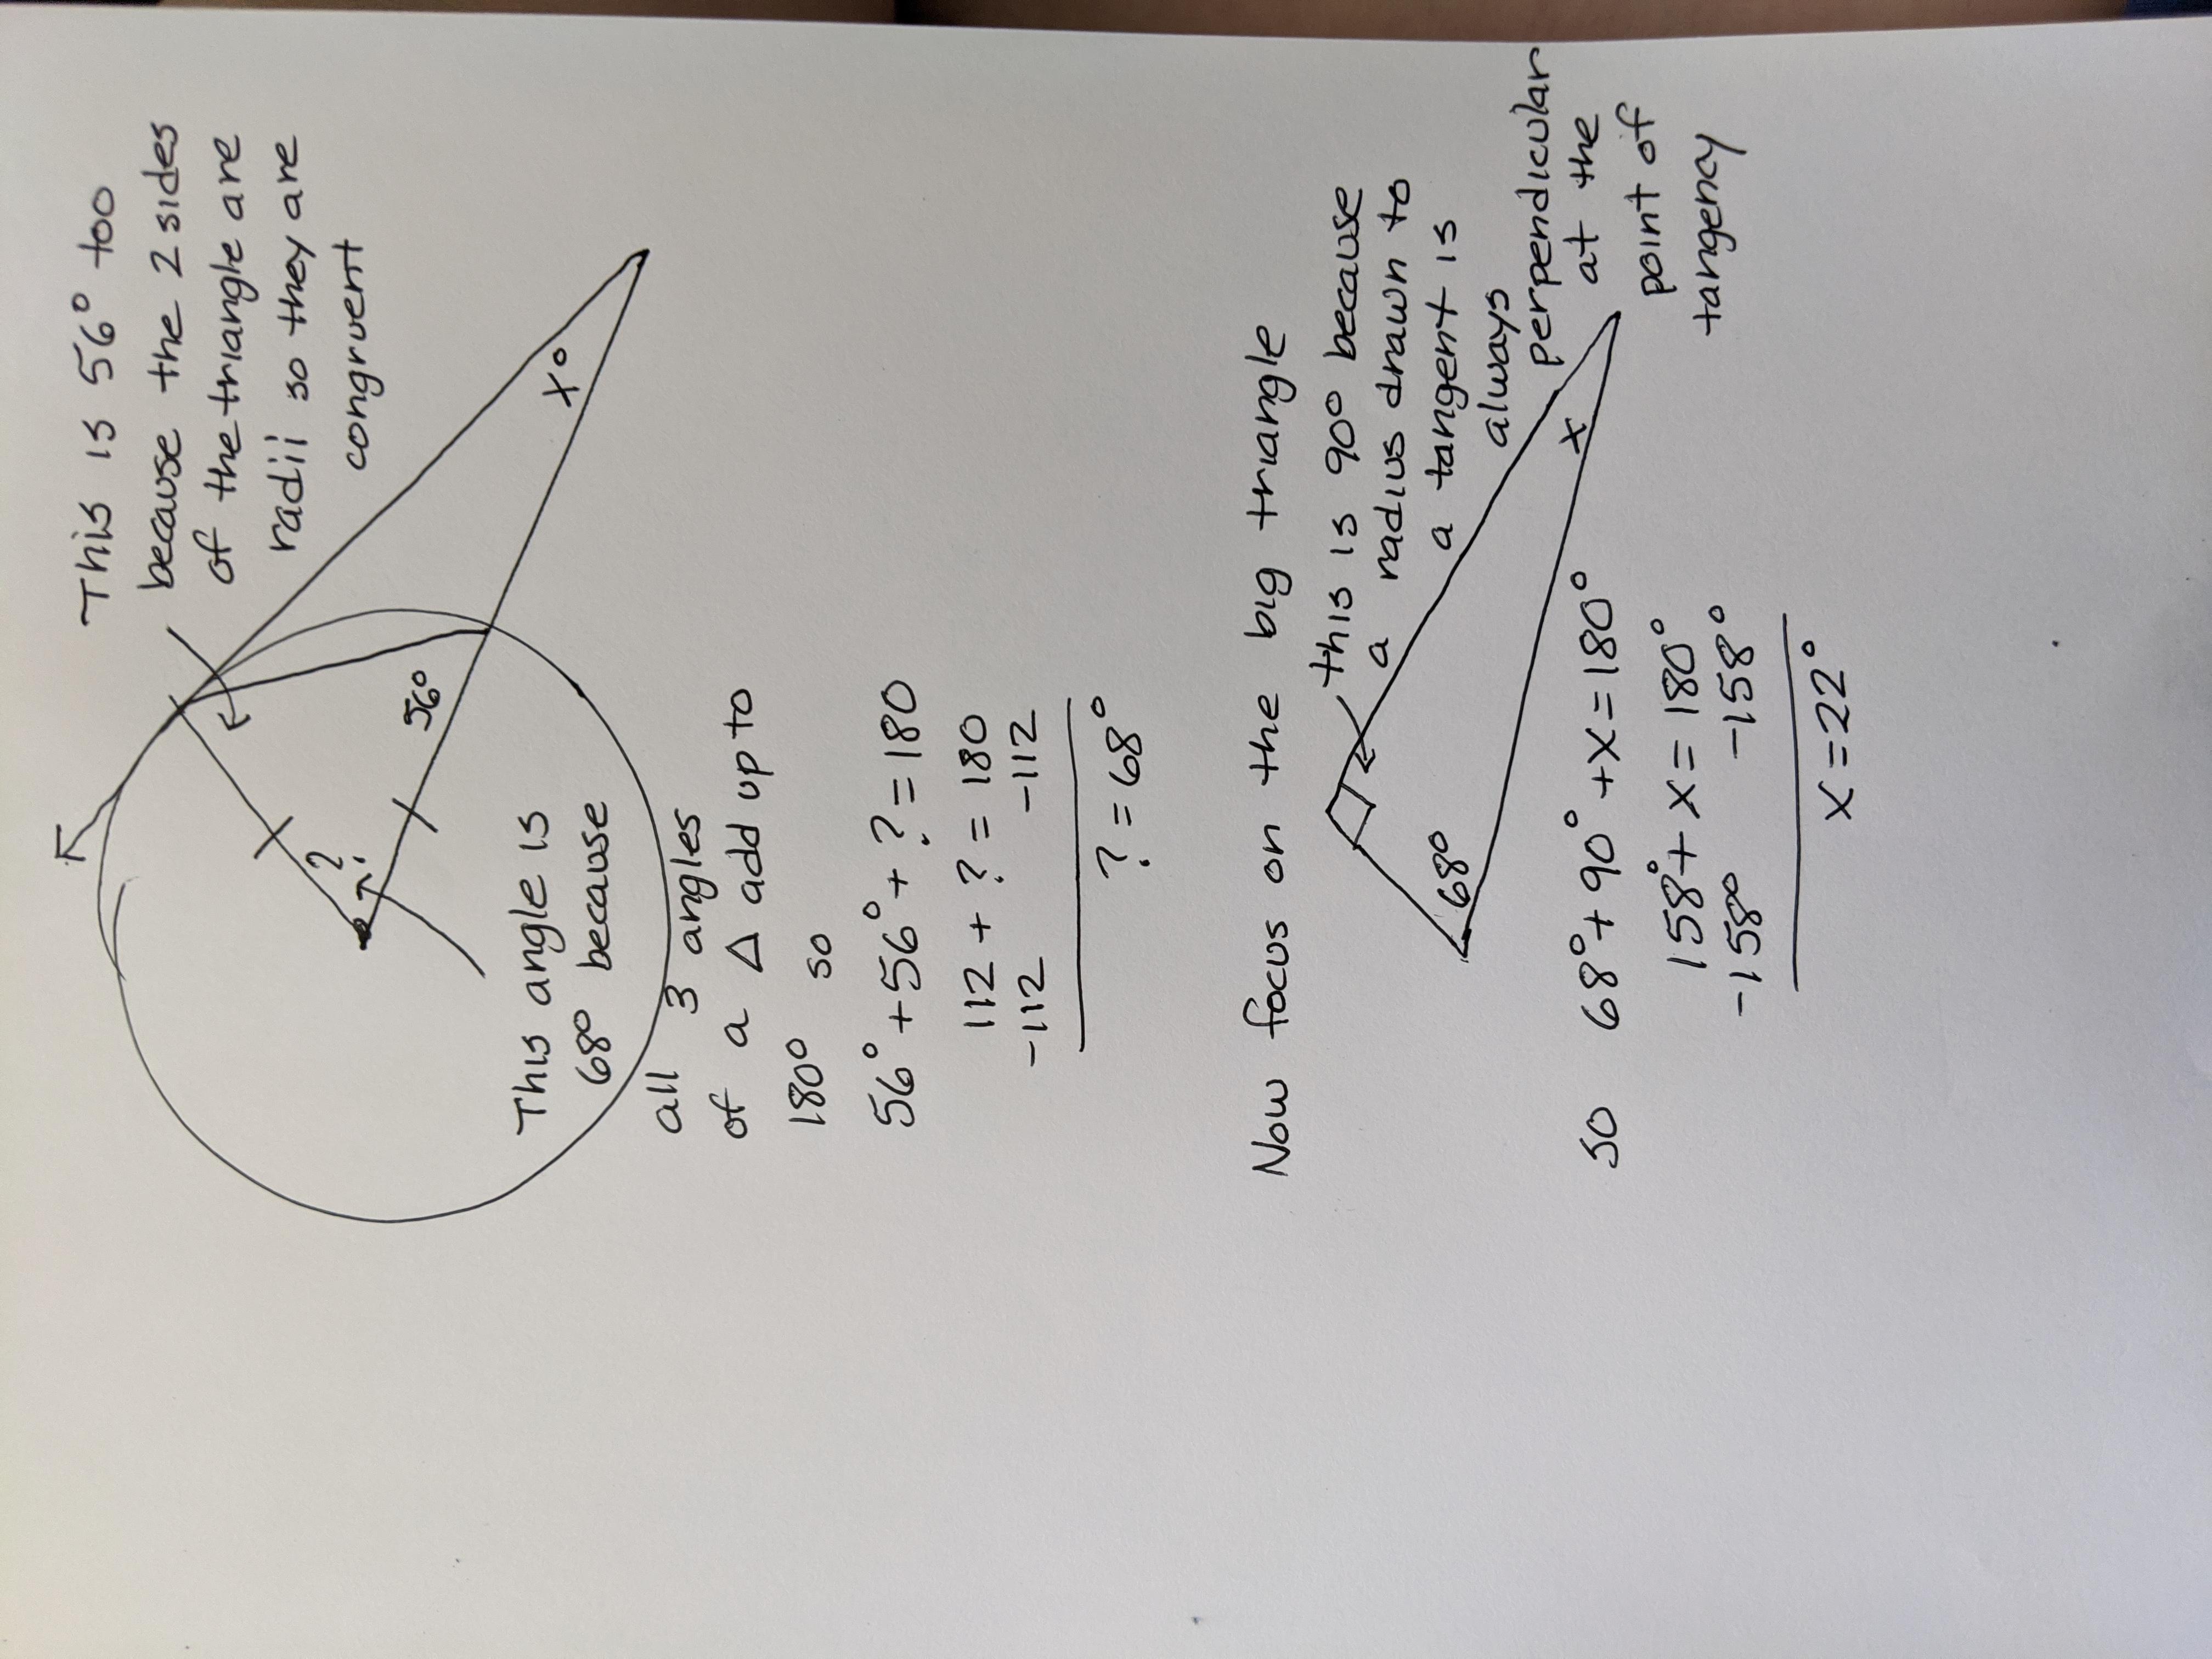 This is 56° too
because the 2 sides
of the triangle are
radii so they are
congruent
?
56°
x°
This angle is
68° because
all 3 angles
of a △ add up to
180° so
56° + 56° + ? = 180
112 + ? = 180
-112 -112
? = 68°
Now focus on the big triangle
this is 90° because
a radius drawn to
a tangent is
always
perpendicular
at the
point of
tangency
68°
x
so 68° + 90° + x = 180°
158° + x = 180°
-158° -158°
x = 22°